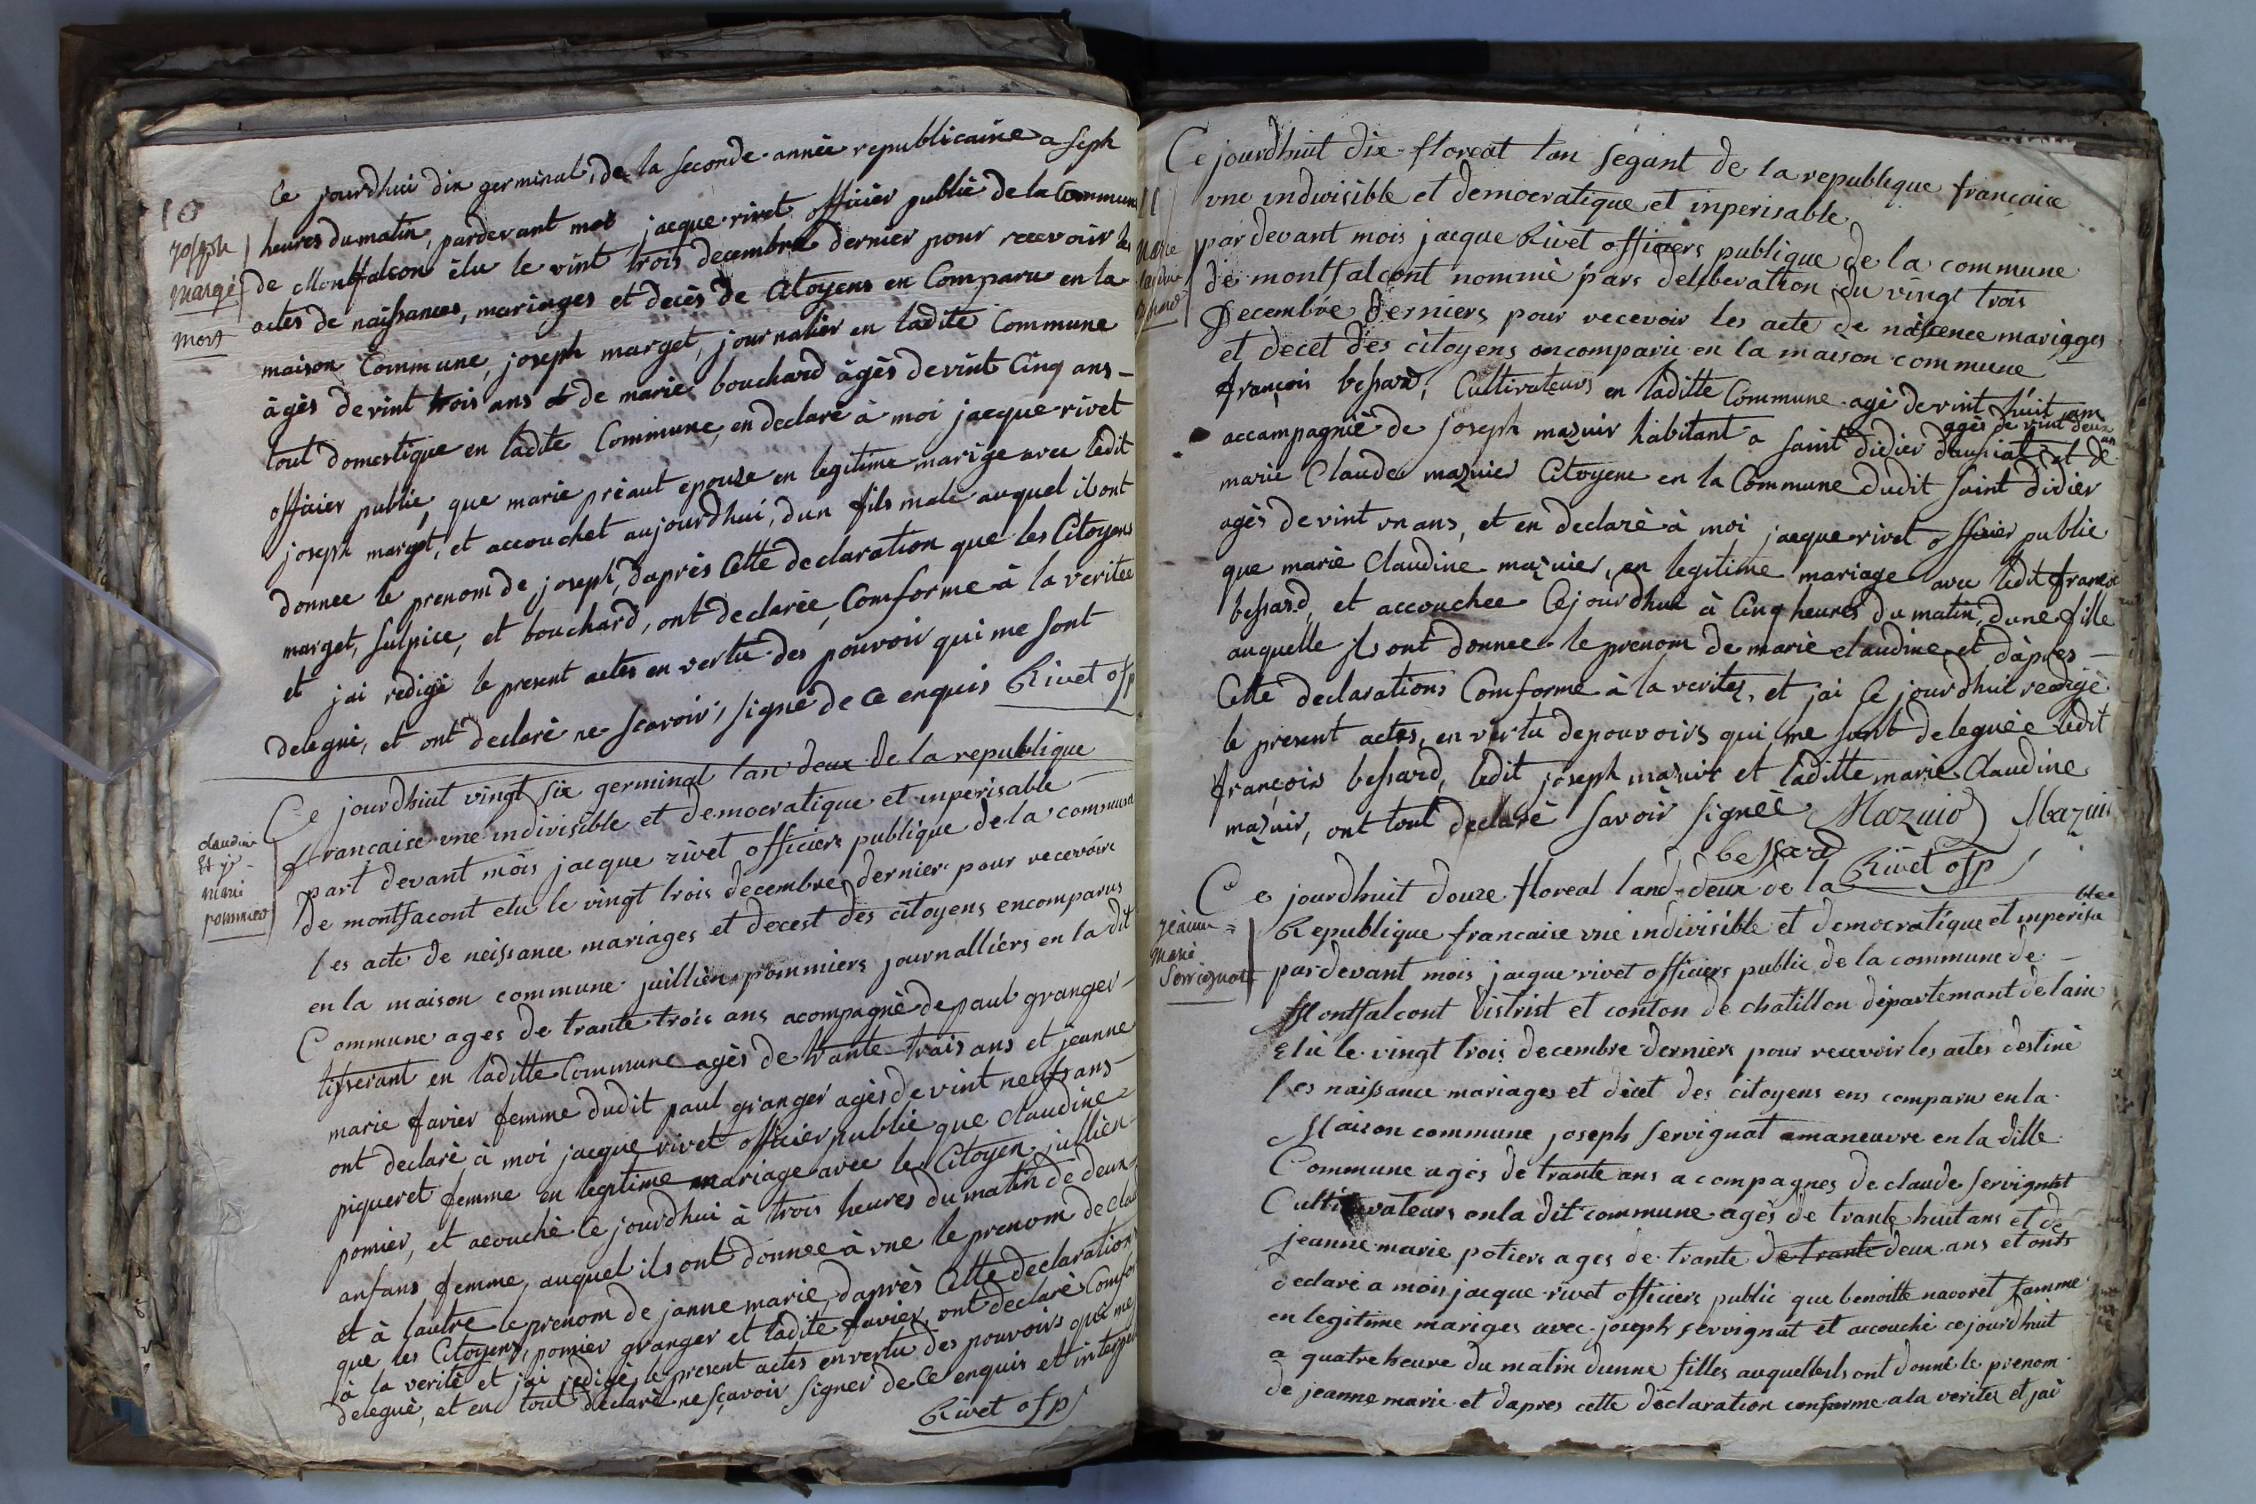 10
joseph
Margé
mort
Ce jourdhui dix germinal, de la seconde année republicaine a seph
heures du matin, pardevant moi jacque rivet officier public de la Commune
de Montfalcon élu le vint trois decembre dernier pour recevoir les
actes de naissances, mariages et decès de Citoyens en Comparu en la
maison Commune, joseph marget, journalier en ladite Commune
âgès de vint trois ans et de marie bouchard âgès de vint Cinq ans
tout domestique en ladite Commune, en declaré à moi jacque rivet
officier public, que marie préaut epouze en legitime marige avec ledit
joseph marget, et accouchet aujourdhui, dun fils male auquel il ont
donnee le prenom de joseph, daprès Cette declaration que les Citoyens
marget, sulpice, et bouchard, ont declarée, Comforme à la veritee
et jai redigé le present actes en vertu des pouvoir qui me sont
delegué, et ont declaré ne scavoir, signé de ce enquis Rivet ofp
claudine
Et j
mari
pommier
Ce jourdhiut vingt six germinal lan deux de la republique
francaise une indivisible et democratique et inperisable
part devant mois jacque rivet officiers publique de la commune
de montfacont elu le vingt trois decembre dernier pour recevoire
les acte de neissance mariages et decest des citoyens encomparus
en la maison commune juillien pommiers journalliers en la dit
Commune ages de trante trois ans acompagné de paul granger
tisserant en laditte Commune agès de trante trois ans et jeanne
marie favier femme dudit paul granger agès de vint neufs ans
ont declaré à moi jacque rivet officier public que claudine
piqueret femme en legitime mariage avec le Citoyen jullien
pomier, et acouché ce jourdhui à trois heures du matin de deux
anfans femme, auquel ils ont donnee à une le prenom de clau
et à lautre le prenom de janne marie, daprès Cette declaration
que les Citoyens, pomier granger et ladite favier, ont declaré Comfor
à la verité et jai redigé le present actes en vertu des pouvoirs qui me
delegué, et en tout declaré ne sçavoir signer de Ce enquis et interpel
Rivet ofp
11
Marie
Ce jourdhuit dix floreat lan segant de la republique francaise
une indivisible et democratique et inperisable
pardevant mois jacque Rivet officiers publique de la commune
de montfalcont nommé pars deliberation du vingt trois
Decembre Derniers pour recevoir les acte de nascence mariages
et decet des citoyens oncomparu en la maison commune
françois bessard, Cultivateurs en laditte Commune agé de vint huit ans
agès de vint deux ans
accampagnié de joseph mazuir habitant a saint didier daussiat et de
marie Claude mazuier Citoyene en la Commune dudit saint didier
agès de vint un ans, et en declaré à moi jacque rivet officier public
que marie Claudine mazuier, en legitime mariage avec ledit françois
bessard, et accouchee Cejourdhui à Cinq heures du matin, dune fille
auquelle ils ont donnee le prenom de marie claudine et dàpres
Cette declarations Comforme à la verites, et jai Ce jourdhui redigé
le present actes, en vertu de pouvoirs qui me sont deleguée ledit
françois bessard, ledit joseph mazuir et laditte marie Claudine
mazuir, ont tout declaré savoir signée Mazuio Mazuir
bessard Rivet ofp
jeanne
marie
Servignat
Ce jourdhuit douze floreal land deux de la
Republique francaise une indivisible et democratique et inperisa
blee
pardevant mois jacque rivet officiers public de la commune de
Montfalcont Distrist et conton de chatillon départemant de lain
Elu le vingt trois decembre derniers pour recevoir les actes destiné
les naissance mariages et dècet des citoyens ens comparu en la
Maison commune joseph servignat amaneuvre en la ditte
Commune agés de trante ans a compagnes de claude servignat
Cultivateurs en la dit commune agés de trante huit ans et de
jeanne marie potiers ages de trante de trante deux ans et onts
declaré a mois jacque rivet officiers public que benoitte navoret famme
en legitime mariges avec joseph servignat et accouché ce jourdhuit
a quatre heure du matin dunne filles auquelle ils ont donné le prenom
de jeanne marie et dapres cette déclaration conforme a la verites et jai